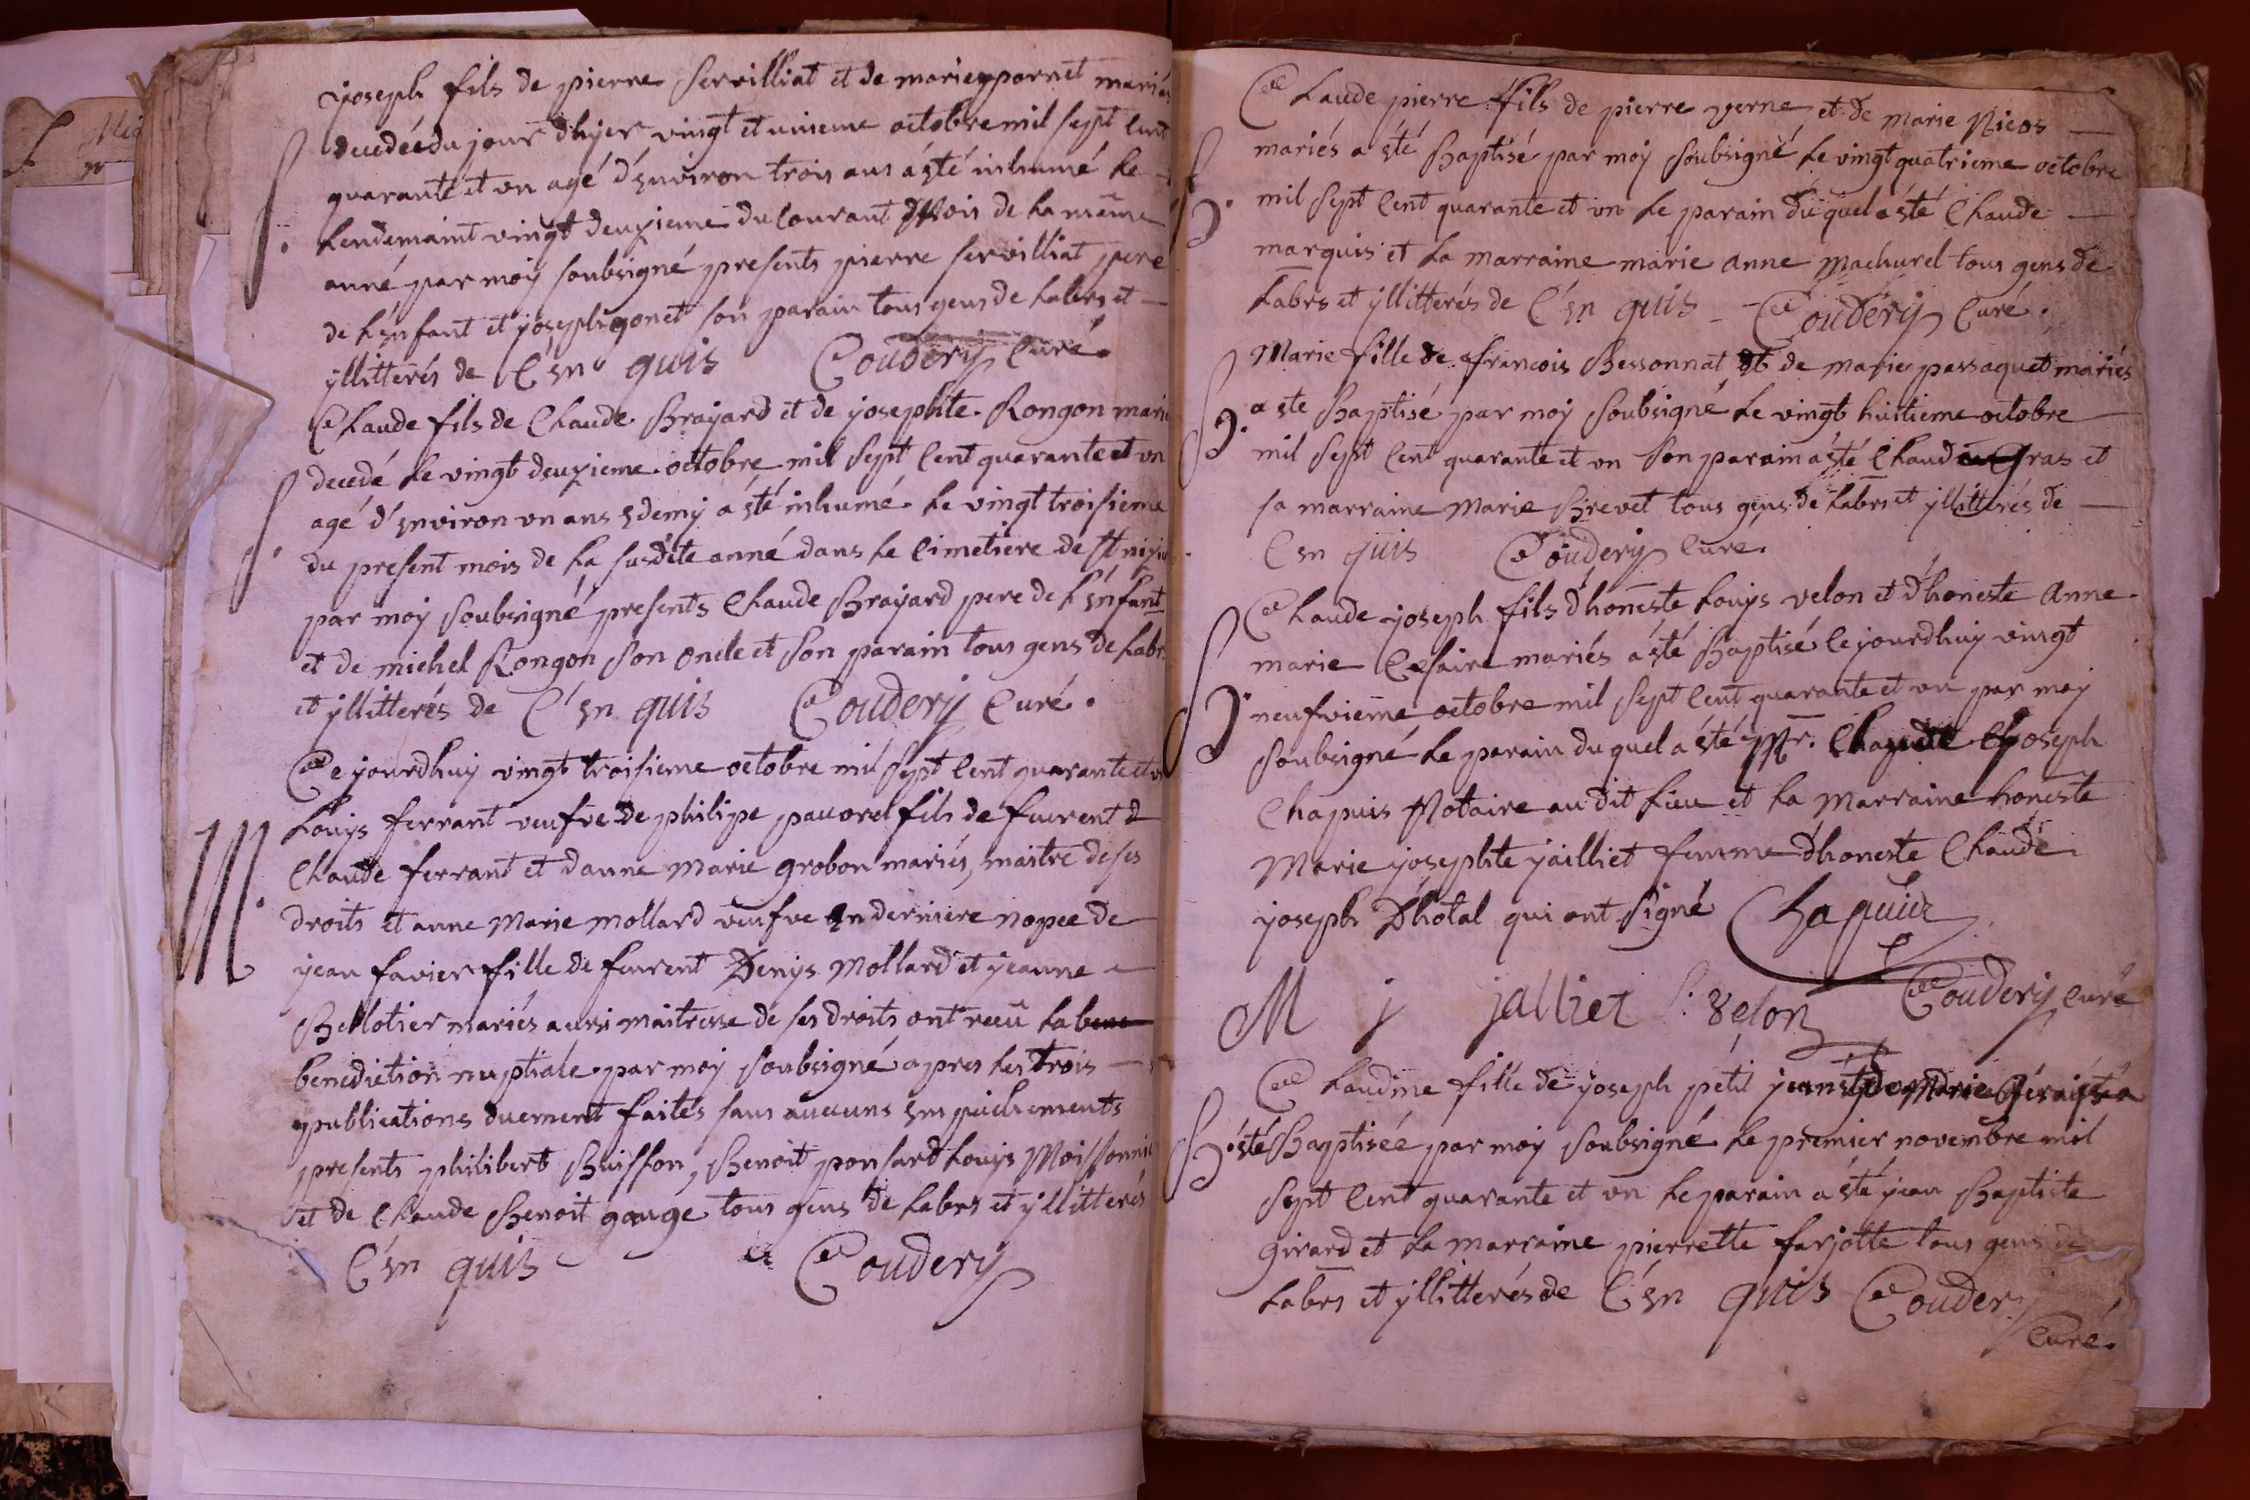 joseph fils de pierre servilliat et de marie pornet mariés
decedée du jour d'hyer vingt et unieme octobre mil sept cent
quarante et un agé d'énviron trois ans á sté inhumé le
S.
lendemaint vingt deuxieme du courant Mois de la même
anné par moy soubsigné presents pierre servilliat pere
de l'énfant et joseph gonet son parain tous gens de labrs et
yllitterés de C'en quis Coudery Curé.
Claude fils de Claude Brayard et de josephte Rongon marié
decedé le vingt deuxieme octobre mil sept cent quarante et un
S.
agé d'énviron un ans & demy a sté inhumé le vingt troisieme
du present mois de la susdite anné dans le Cimetiere de St
par moy soubsigné presents Claude Brayard pere de l'énfant
et de michel Rongon son oncle et son parain tous gens de labr
et yllitterés de C'en quis Coudery Curé.
Ce jourdhuy vingt troisieme octobre mil sept cent quarante et
louys ferrant veufve de philipe pauorel fils de furent
M.
Claude ferrant et danne Marie grobon mariés, maitre de ses
droits et anne Marie mollard veufve en derniere nopce de
jean favier fille de furent Denys Mollard et jeanne
Bellotier mariés aussi maitresse de ses droits ont receü la bene
benediction nuptiale par moy soubsigné apres les trois
publications duement faites sans aucuns empechements
presents philibert Buisson, Benoit ponsard louys Moissonnie
et de Claude Benoit gauge tous gens de labrs et yllitterés
C'en quis Coudery
Claude pierre fils de pierre verne et de marie Nicos
mariés a sté Baptisé par moy soubsigné le vingt quatrieme octobre
B.
mil sept cent quarante et un le parain du quel a sté Claude
marquis et la marraine marie anne machurel tous gens de
labrs et yllitterés de C'en quis Coudery Curé.
Marie fille de francois Bessonnat et de marie passaquet mariés
B.
a ste Baptisé par moy soubsigné le vingt huitieme octobre
mil sept cent quarante et un son parain a sté Claude Gras et
sa marraine Marie Brevet tous gens de labrs et yllitterés de
C'en quis Coudery Cure.
Claude joseph fils d'honeste louys velon et d'honeste Anne
marie Cesaire mariés a sté Baptisé Ce jourdhuy vingt
B.
neufvieme octobre mil sept cent quarante et un par moy
soubsigné le parain du quel a sté Mr. Claude joseph
Chapuis Notaire au dit lieu et la Marraine honeste
Marie josephte jailliet femme d'honeste Claude
joseph Dhotal qui ont signé Chapuis
M j jalliet l. velon Coudery Curé
Claudine fille de joseph petit jean et de Marie a
B.
sté Baptisée par moy soubsigné le premier novembre mil
sept cent quarante et un le parain a sté jean Baptiste
girard et la marraine pierrette farjotte tous gens de
labrs et yllitterés de C'en quis Coudery
Curé.